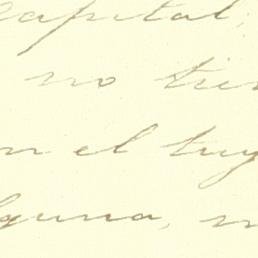 capital,
no tien
en el tuy
lguna, n